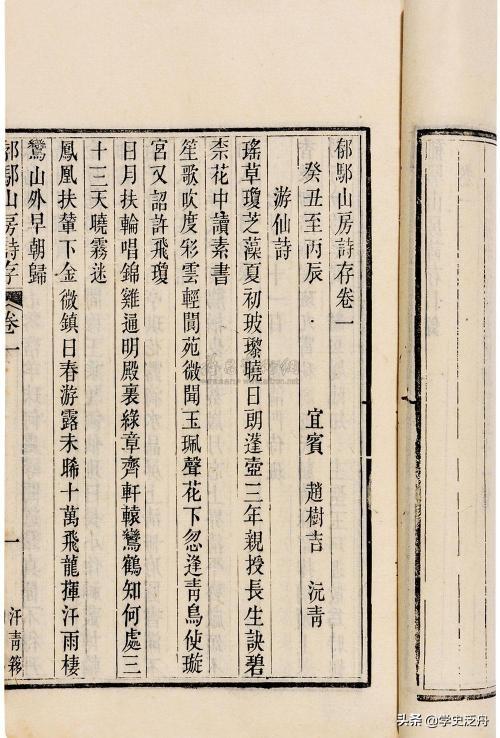 郁鄢山房詩存卷一
癸丑至丙辰 宜賓 趙樹吉 沅青
游仙詩
瑤草瓊芝藻夏初玻瓈曉日朗蓬壺三年親授長生訣碧
柰花中讀素書
笙歌吹度彩雲輕閬苑微聞玉珮聲花下忽逢青鳥使璇
宮又詔許飛瓊
日月扶輪唱錦雞通明殿裏綠章齊軒轅鸞鶴知何處三
十三天曉霧迷
鳳凰扶輦下金微鎮日春游露未晞十萬飛龍揮汗雨棲
鸞山外早朝歸
郁鄢山房詩存 卷一 一 汗青簃
头条 @学史泛舟